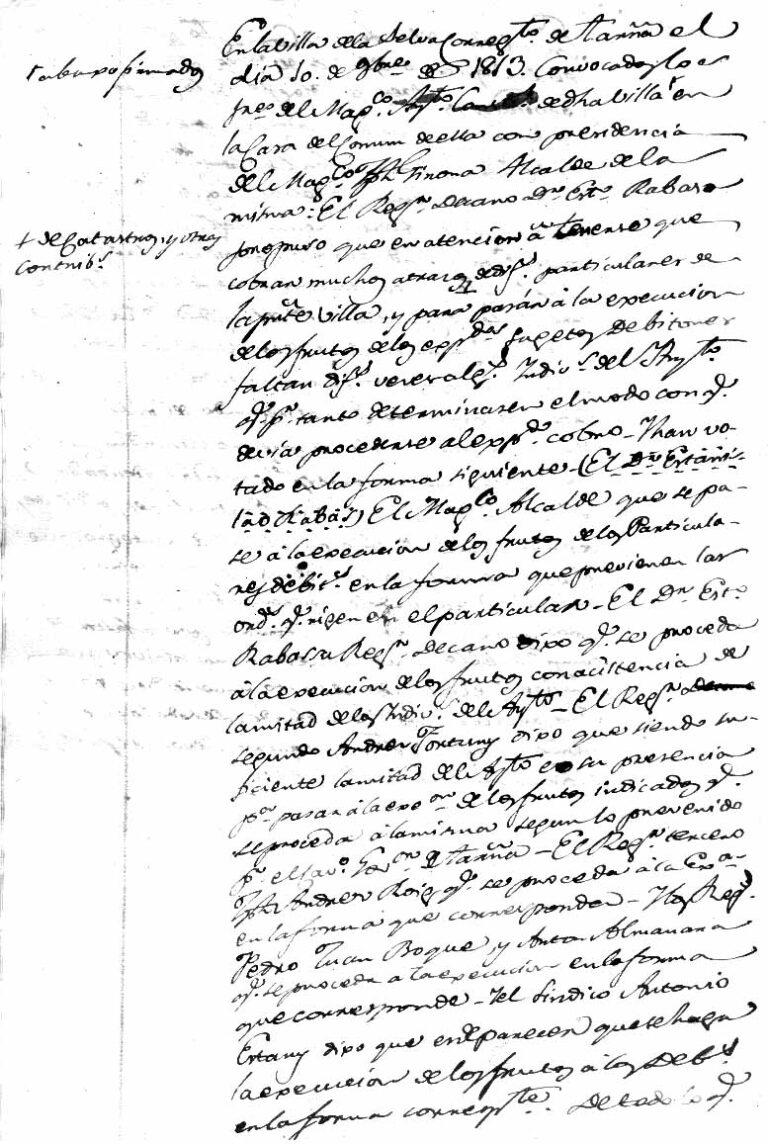 En la villa de la Selva Corregto. de Tarrña el
abaxo firmados
dia 10. de 9bre de 1813. Convocados los
del Magco. Ayto. de dha villa en
la Casa del Comun de ella con presidencia
del Magco. Jph Girona Alcalde de la
misma: El Regr. decano Dn. Este. Rabasa
+ de Catastros, y otras
contribs.
propuso que en atencion a tenerse que
cobrar muchos atrasos de difs. particulares de
la prnte villa, y para pasar à la execucion
de los frutos de los expdos sugetos Debitores
faltan difs. Indivs. del Ayto.
qe. pr. tanto determinasen el modo con qe.
devia procederse al expdo. cobro - Y han vo-
tado en la forma siguiente - (El Dn. Estanis-
lao Rabasa) El Magco. Alcalde que se pa-
se à la execucion de los frutos de los Particula-
res debits. en la forma que previenen las
ords. qe. rigen en el particular - El Dn. Este.
Rabasa Regr. decano dixo qe. se proceda
à la execucion de los frutos con acistencia de
la mitad de los Indivs. del Ayto. - El Regr.
segundo Andreu Fortuny dixo que siendo su-
ficiente la mitad del Ayto. su presencia
pa. pasar à la exon. de los frutos indicados qe.
se proceda à la misma segun lo prevenido
pr. el de Tarrña - El Regr. tercero
Jph Andreu Roig qe. se proceda à la Exa-
en la forma que corresponda - Y los Regs.
Pedro Juan Boque, y Anton Almanara
qe. se proceda a la execucion en la forma
que corresponde - Y el Sindico Antonio
Estany dixo que en parecer que se haga
la execucion de los frutos à los Debs.
en la forma correspte. De todo lo qe.